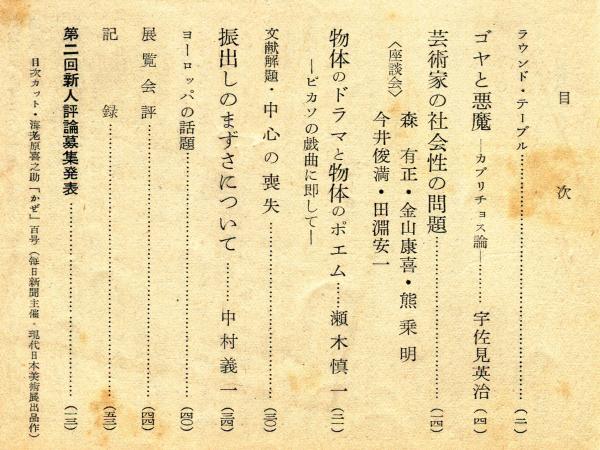 目次
ラウンド・テーブル……………(二)
ゴヤと悪魔 ―カプリチョス論―………宇佐見英治(四)
芸術家の社会性の問題……………(一四)
〈座談会〉森有正・金山康喜・熊乗明
今井俊満・田淵安一
物体のドラマと物体のポエム……瀬木慎一(二一)
―ピカソの戯曲に即して―
文献解題・中心の喪失……………(三〇)
振出しのまずさについて………中村義一(三四)
ヨーロッパの話題……………(四〇)
展覧会評……………(四四)
記録……………(五三)
第二回新人評論募集発表……………(一三)
目次カット・海老原喜之助「かぜ」百号(毎日新聞主催・現代日本美術展出品作)